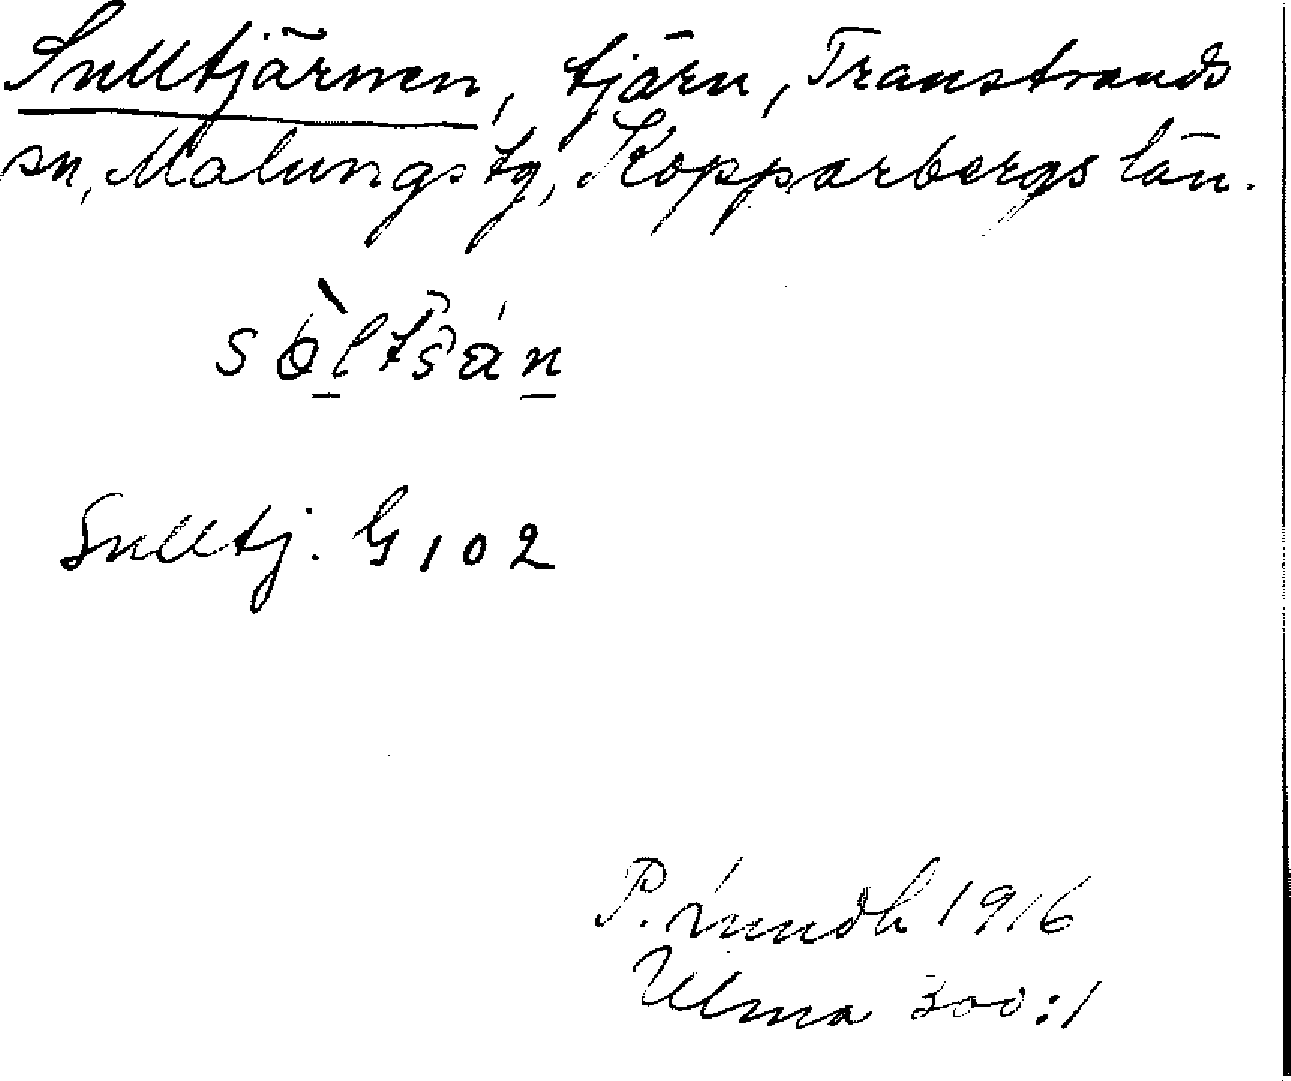 Sulltjärnen, tjärn, Transtrands
sn, Malungs tg, Kopparbergs län.
Sulltj. G 102
P. Lundh 1916
Ulma 300:1